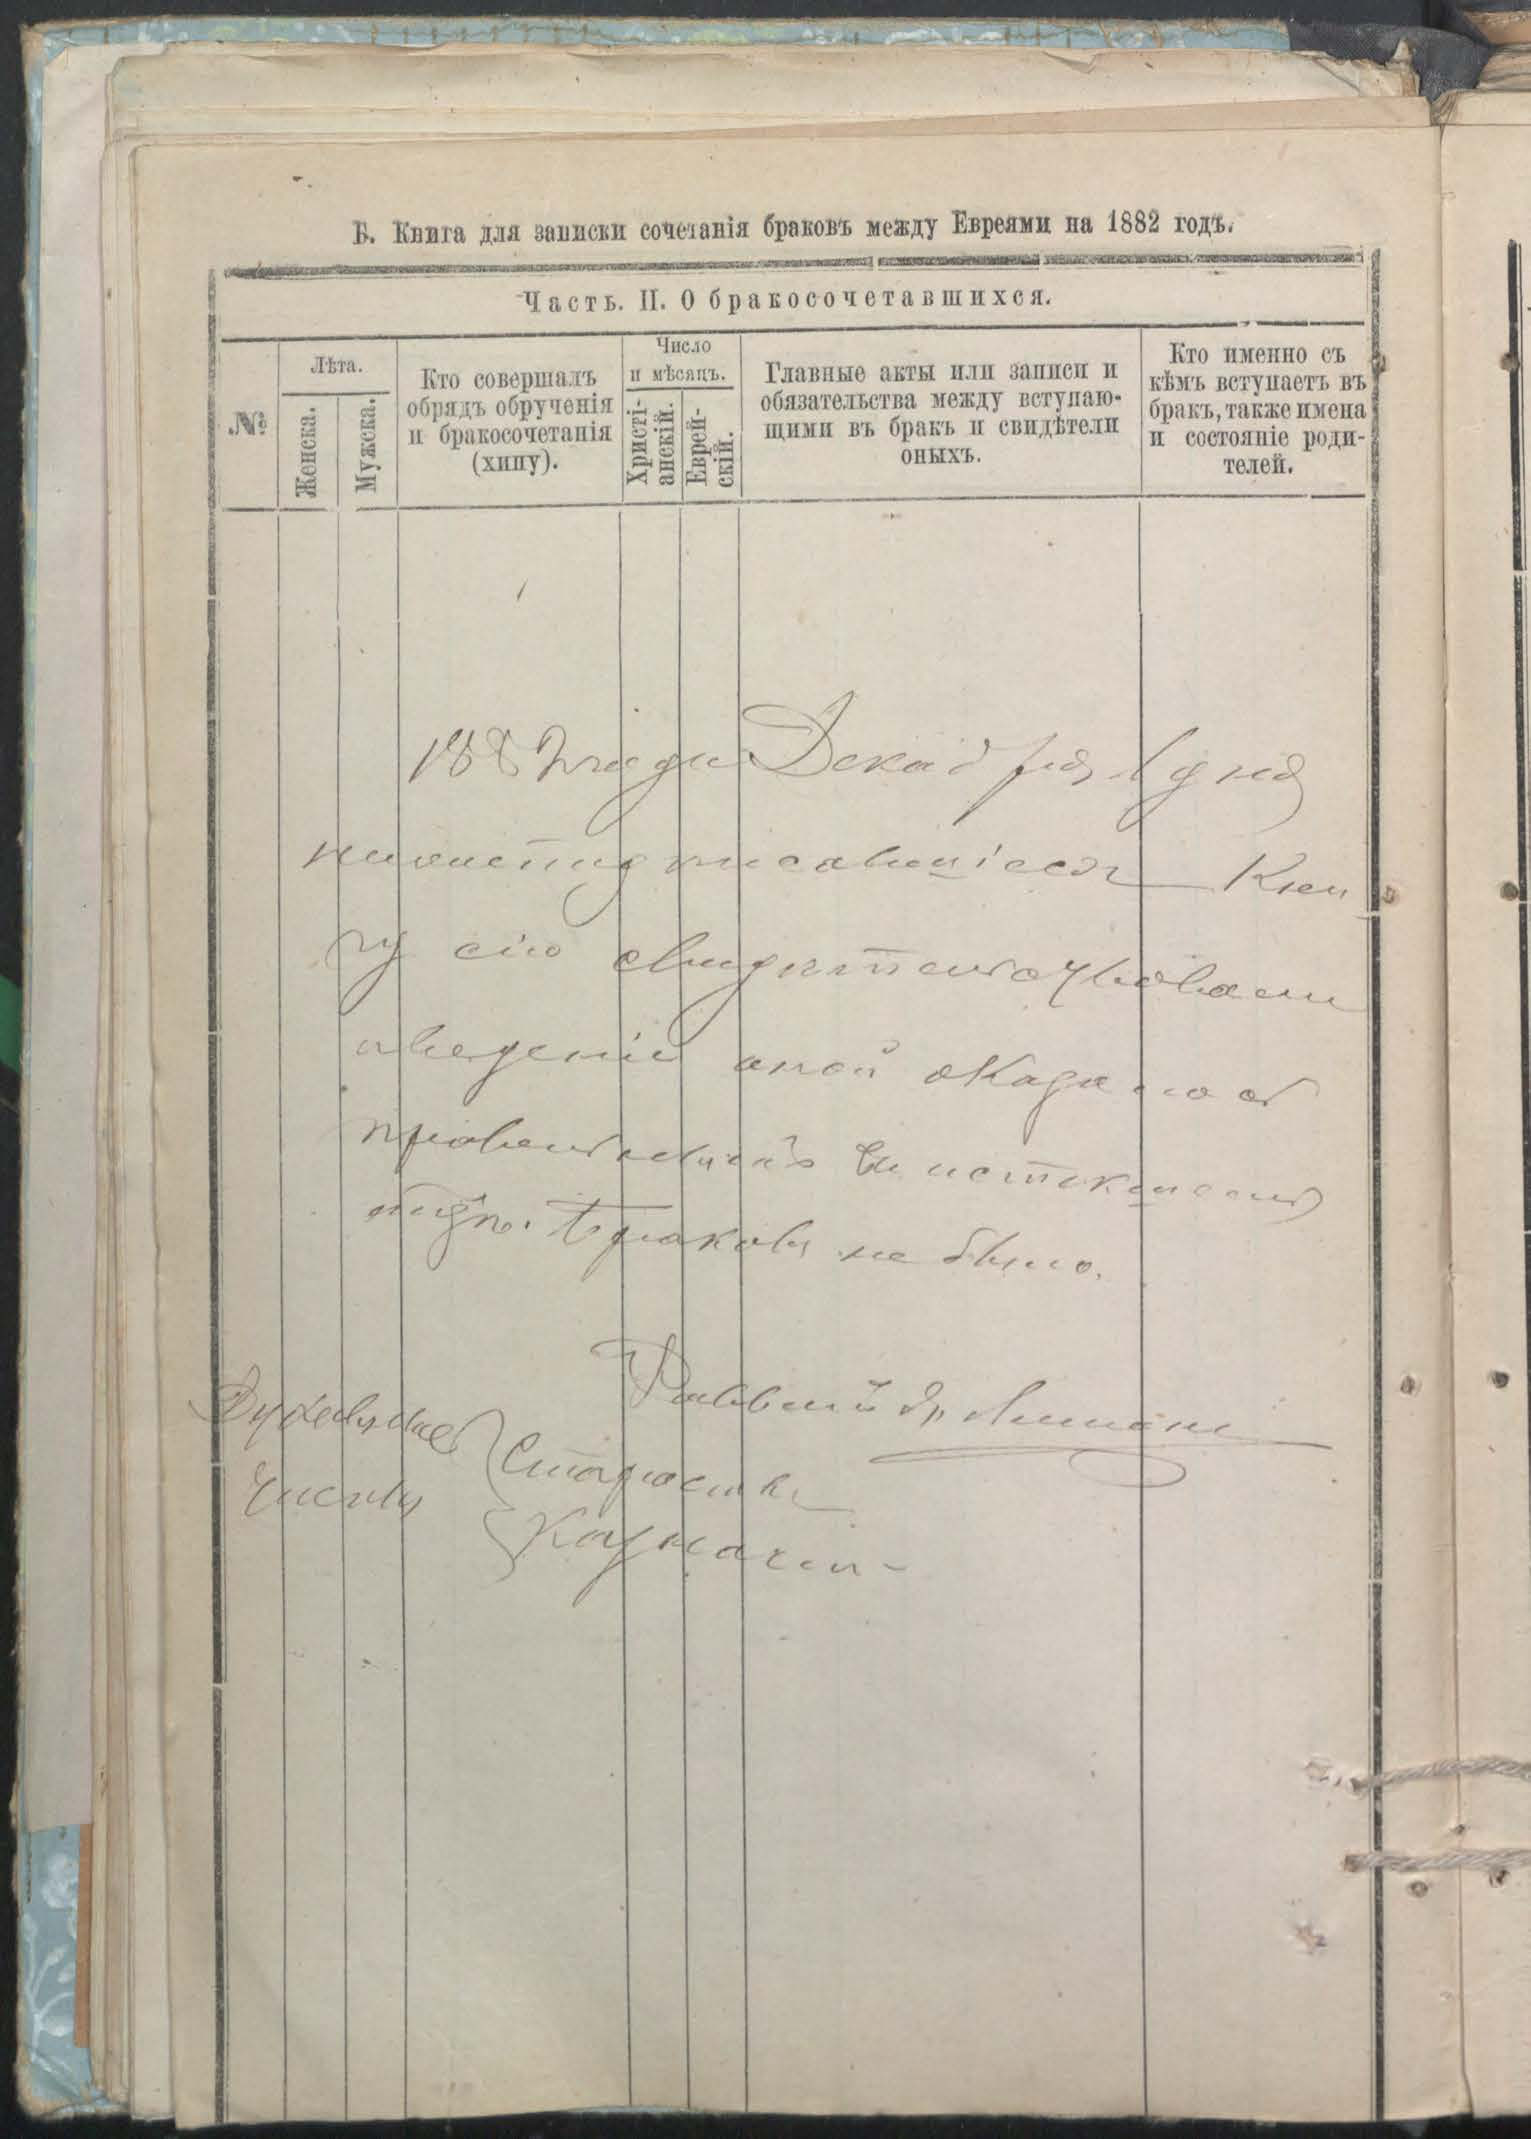 Б. Книга для записки сочетанія браковъ между Евреями на 1882 годъ.
Часть. II. О бракосочетавшихся.
№
Лѣта.
Женска.
Мужска.
Кто совершалъ
обрядъ обрученія
и бракосочетанія
(хипу).
Число
и мѣсяцъ.
Христі-
анскій.
Еврей-
скій.
Главные акты или записи и
обязательства между вступаю-
щими въ бракъ и свидѣтели
оныхъ.
Кто именно съ
кѣмъ вступаетъ въ
бракъ, также имена
и состояніе роди-
телей.
1882 года Декабря 1 дня
нижеподписавшіеся Кни
гу сію свидѣтельствовали
и веденіе оной оказалось
правильнымъ въ истекшемъ
браковъ не было.
Раввинъ
Духовные
Члены
Староста
Казначей